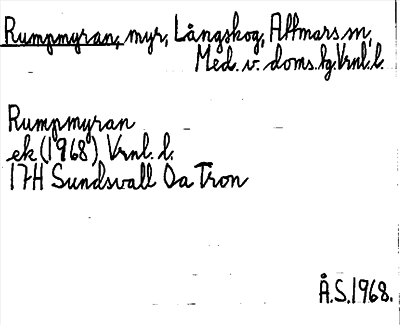 Rumpmyran, myr, Långskog, Attmars sn,
Med. v. doms. hg. Vrnl. l.
Rumpmyran
ek (1968) Vrnl. l.
17H Sundsvall 0a Tron
Å.S. 1968.